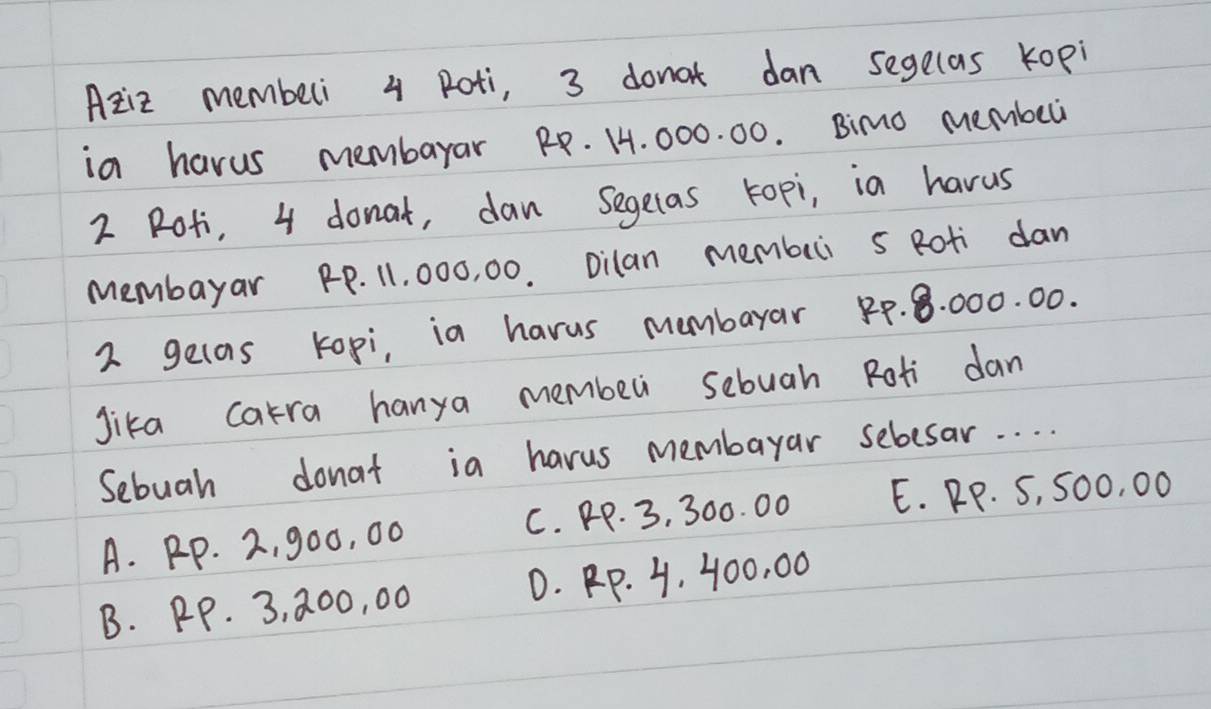 Aziz membeli 4 Roti, 3 donat dan segelas kopi
ia harus membayar RP. 14.000.00. Bimo membeli
2 Roti, 4 donat, dan Segelas kopi, ia harus
membayar RP. 11.000,00. Dilan membeli 5 Roti dan
2 gelas kopi, ia harus membayar RP. 8.000.00.
Jika Cakra hanya membeli Sebuah Roti dan
Sebuah donat ia harus membayar sebesar....
A. RP. 2,900,00 C. RP. 3,300.00 E. RP. 5,500,00
B. RP. 3,200,00 D. RP. 4.400,00